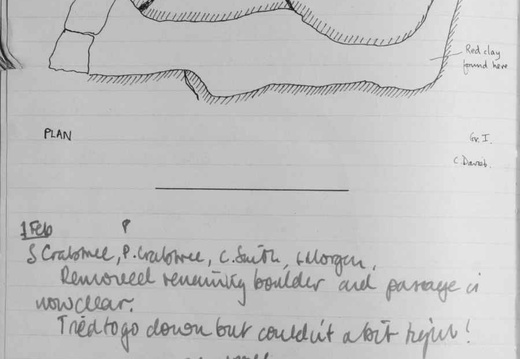 Red clay
found here
PLAN
Gr. I.
C. David.
1 Feb
P
S Crabtree, P. Crabtree, C. Smith, L Morgan.
Removed remaining boulder and passage is
now clear.
Tried to go down but couldn't a bit tight!